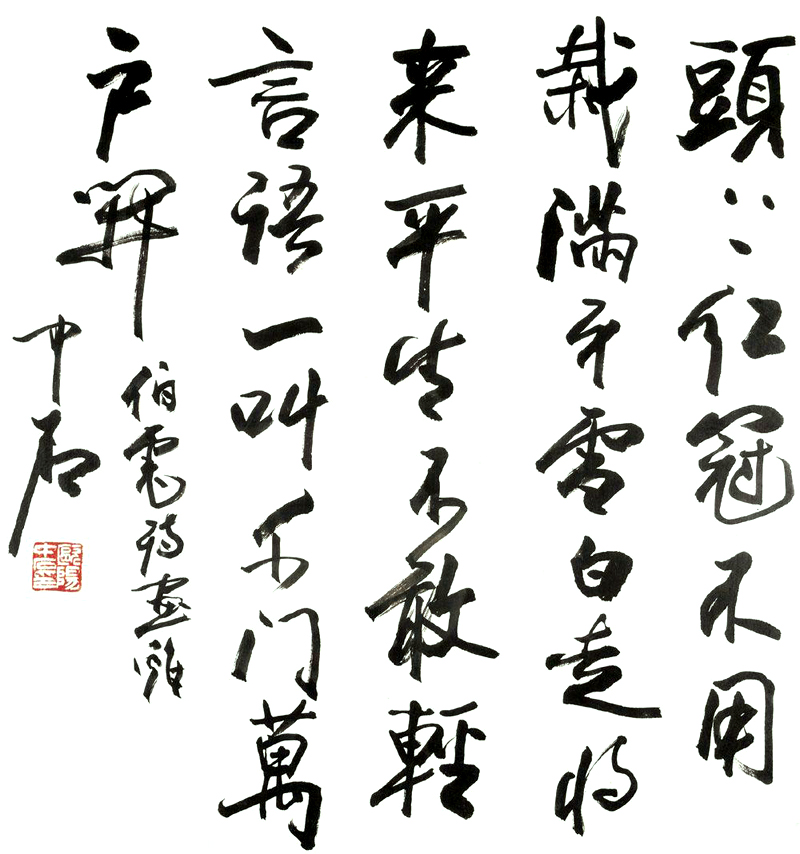 頭上红冠不用
裁滿身雪白走将
来平生不敢輕
言語一叫千门萬
户開
伯虎诗畫雞
中石
歐陽中石